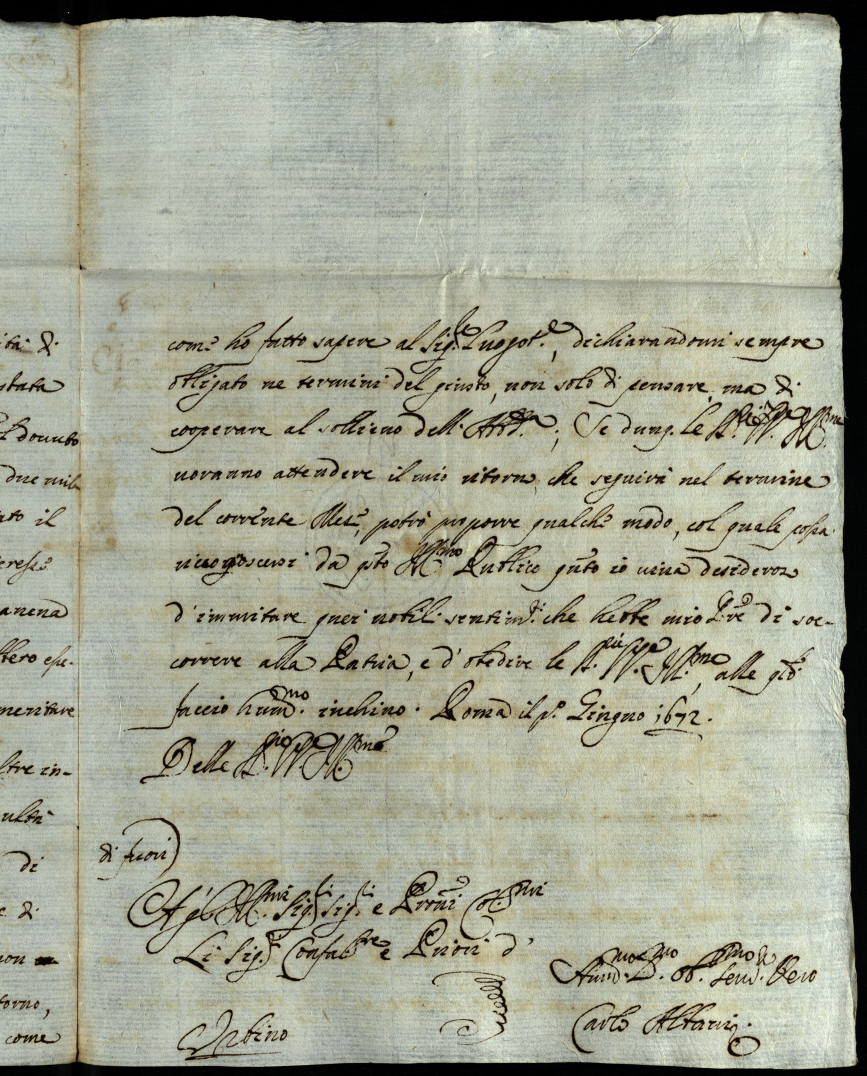 ità di
stata
dovuto
due mila
ato il
teresse
anena
ltero spe-
meritare
ltre in-
ultà
di
e di
non
torno,
come
come ho fatto sapere al Sig.re Luogot.e, dichiarandomi sempre
obligato ne termini del giusto, non solo di pensare, ma di
cooperare al sollievo dell' ; Se dunq. le SS.rie VV. Ill.me
voranno attendere il mio ritorno, che seguirà nel termine
del corrente Mese, potrò proporre qualche modo, col quale possa
riconoscersi da q.sto Ill.mo Publico q.nto io viva desideroso
d'immitare quei nobili sentim.ti che hebbe mio Pre di soc-
correre alla Patria, e d'obedire le SS.rie VV. Ill.me, alle q.li
faccio hum.mo inchino. Roma il p.o Giugno 1672.
Delle SS.rie VV. Ill.me
di fuori)
Agl' Ill.mi Sig.ri Sig.ri e Proni Col.mi
Li Sig.ri Confal.re e Priori d'
Urbino
Hum.mo D.mo Ob. Serv.re Vero
Carlo